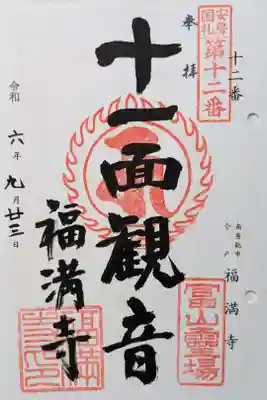 十二番
安房
国札
第十二番
奉拝
十一面観音
福満寺
令和六年九月廿三日
南房総市
合戸
福満寺
富山霊場